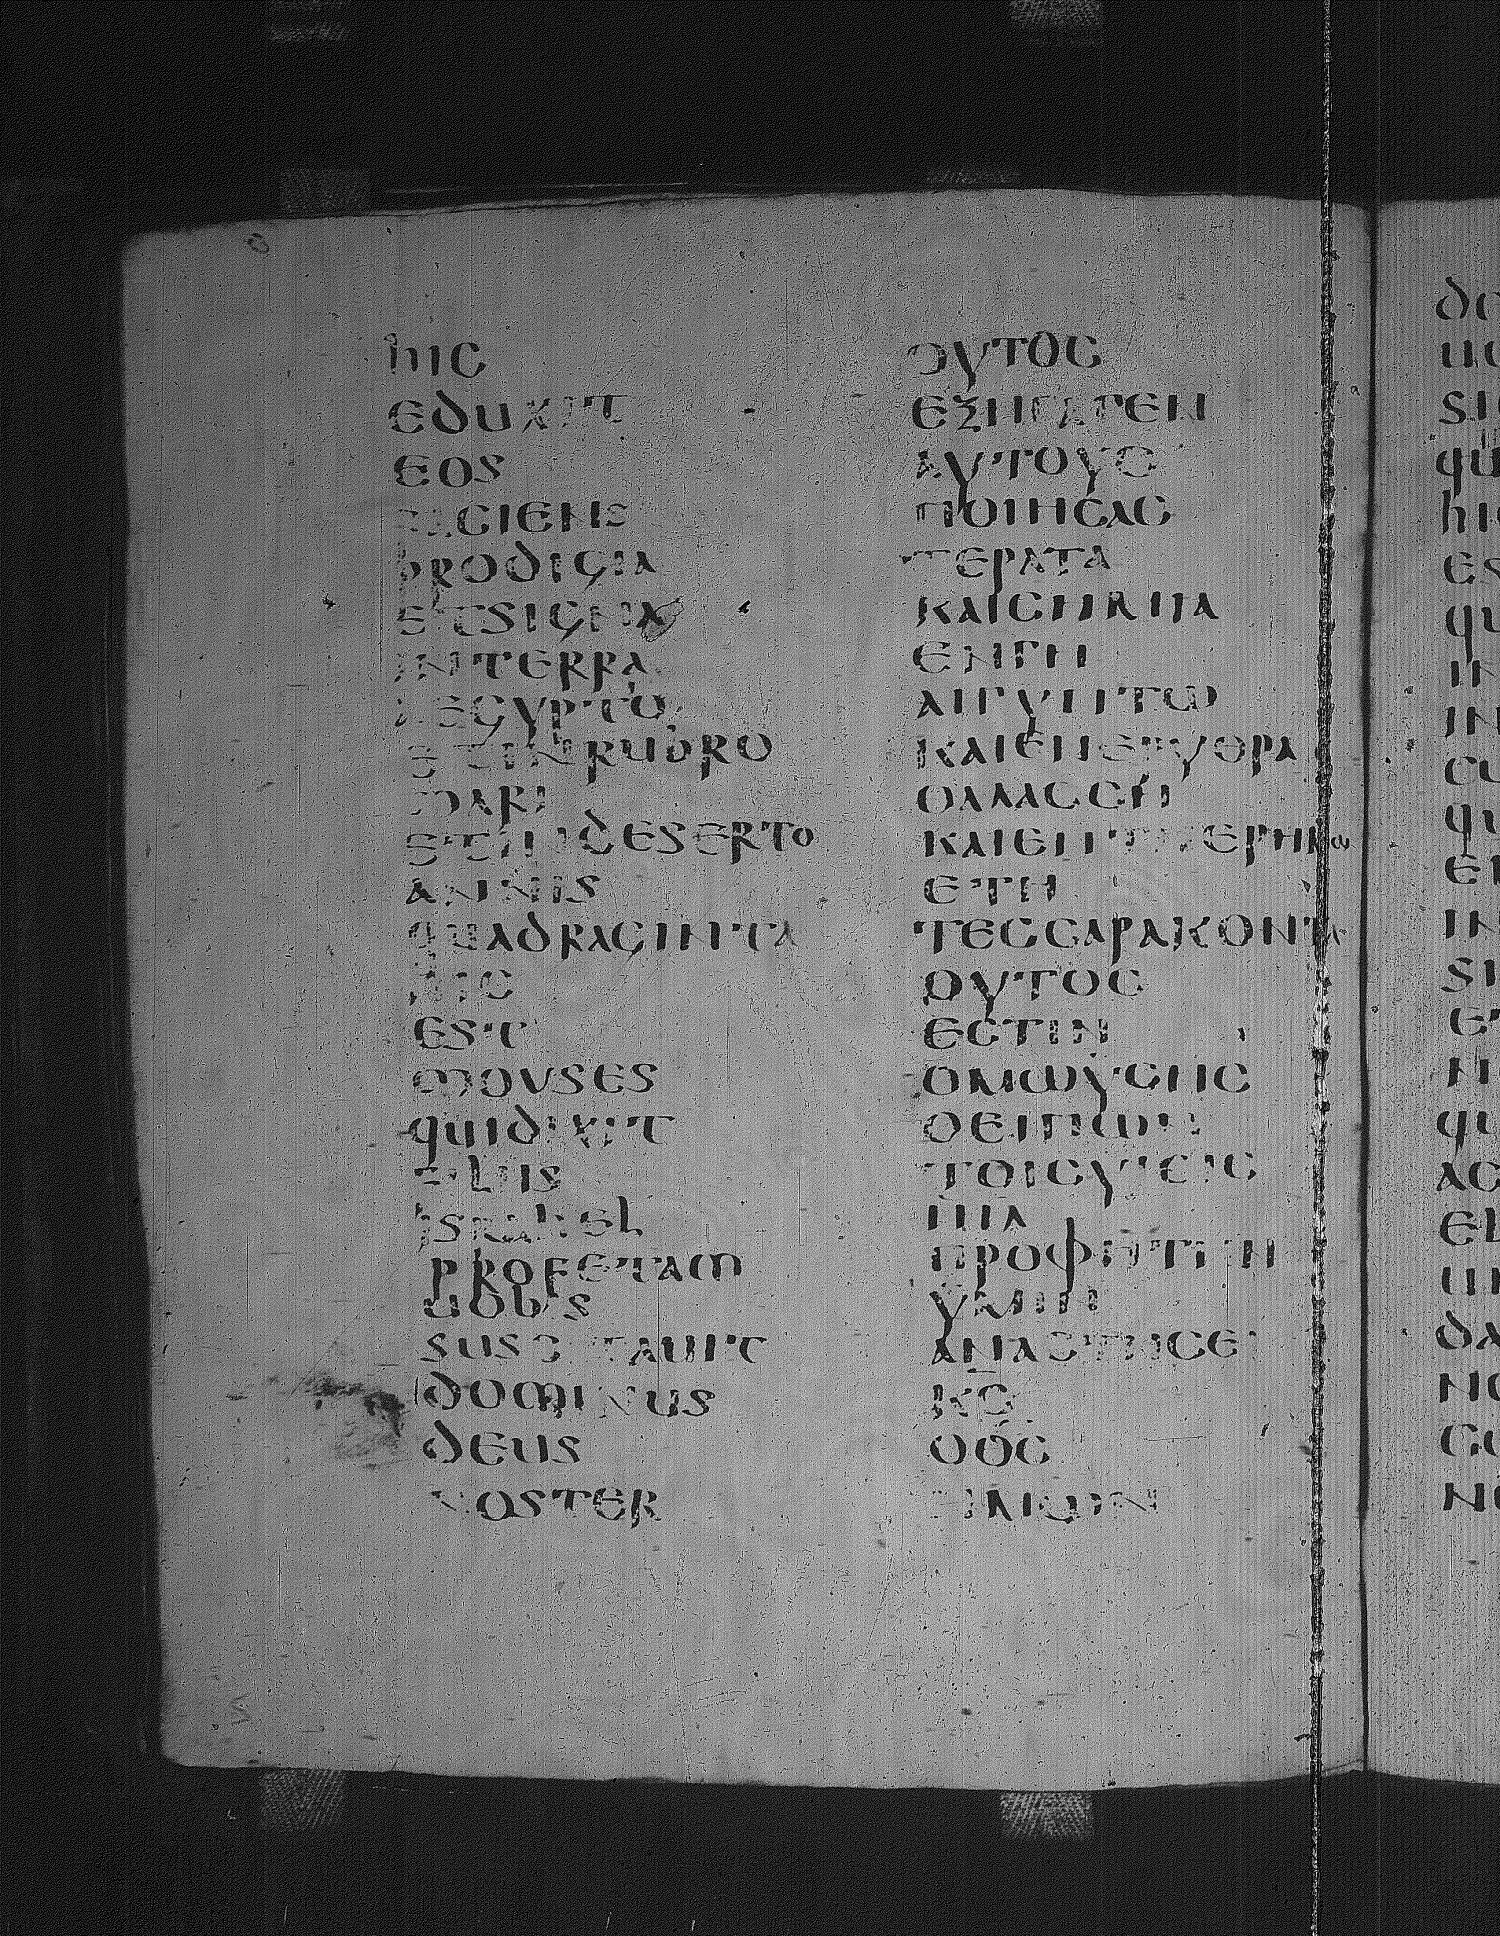 hic
eduxit
eos
faciens
prodigia
et signa
in terra
aegypto
et in rubro
mari
et in deserto
annis
quadraginta
hic
est
mouses
qui dixit
filiis
israhel
profetam
uobis
suscitauit
dominus
deus
uoster
ουτοσ
εξηγαγεν
αυτουσ
ποιησασ
τερατα
και σημια
εν γη
αιγυπτω
και εν ερυθρα
θαλασση
και εν τη ερημω
ετη
τεσσαρακοντα
ουτοσ
εστιν
ο μωυσησ
ο ειπων
τοισ υιεισ
ιηλ
προφητην
υμιν
αναστησει
κσ
ο θσ
ημων